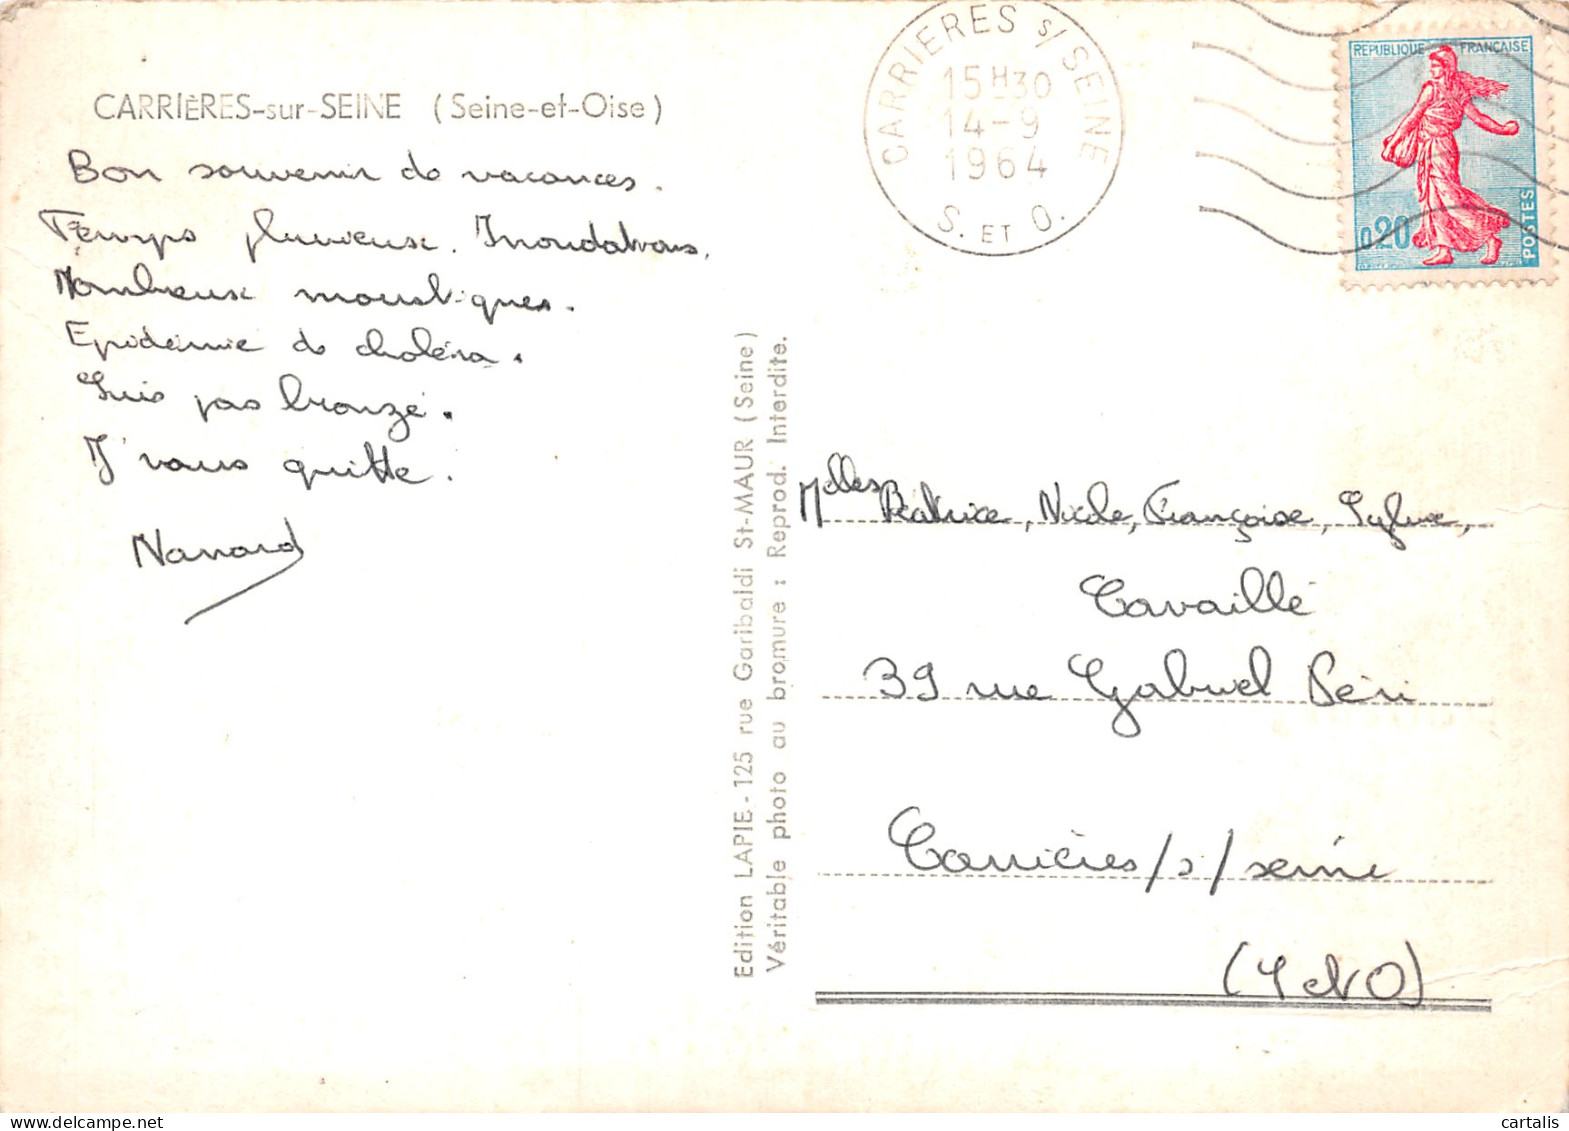 CARRIÈRES-sur-SEINE (Seine-et-Oise)
Bon souvenir de vacances.
Temps pluvieux. Inondations.
Nombreux moustiques.
Epidémie de choléra.
Suis pas bronzé.
J'vous quitte.
Nanard
Edition LAPIE - 125 rue Garibaldi St-MAUR (Seine)
Véritable photo au bromure : Reprod. Interdite.
CARRIERES s/ SEINE
15H30
14-9
1964
S. ET O.
REPUBLIQUE FRANÇAISE
0,20
POSTES
Melles Béatrice, Nicole, Françoise, Sylvie,
Cavaillé
39 rue Gabriel Péri
Carrières/s/seine
(S et O)
cartalis
www.delcampe.net